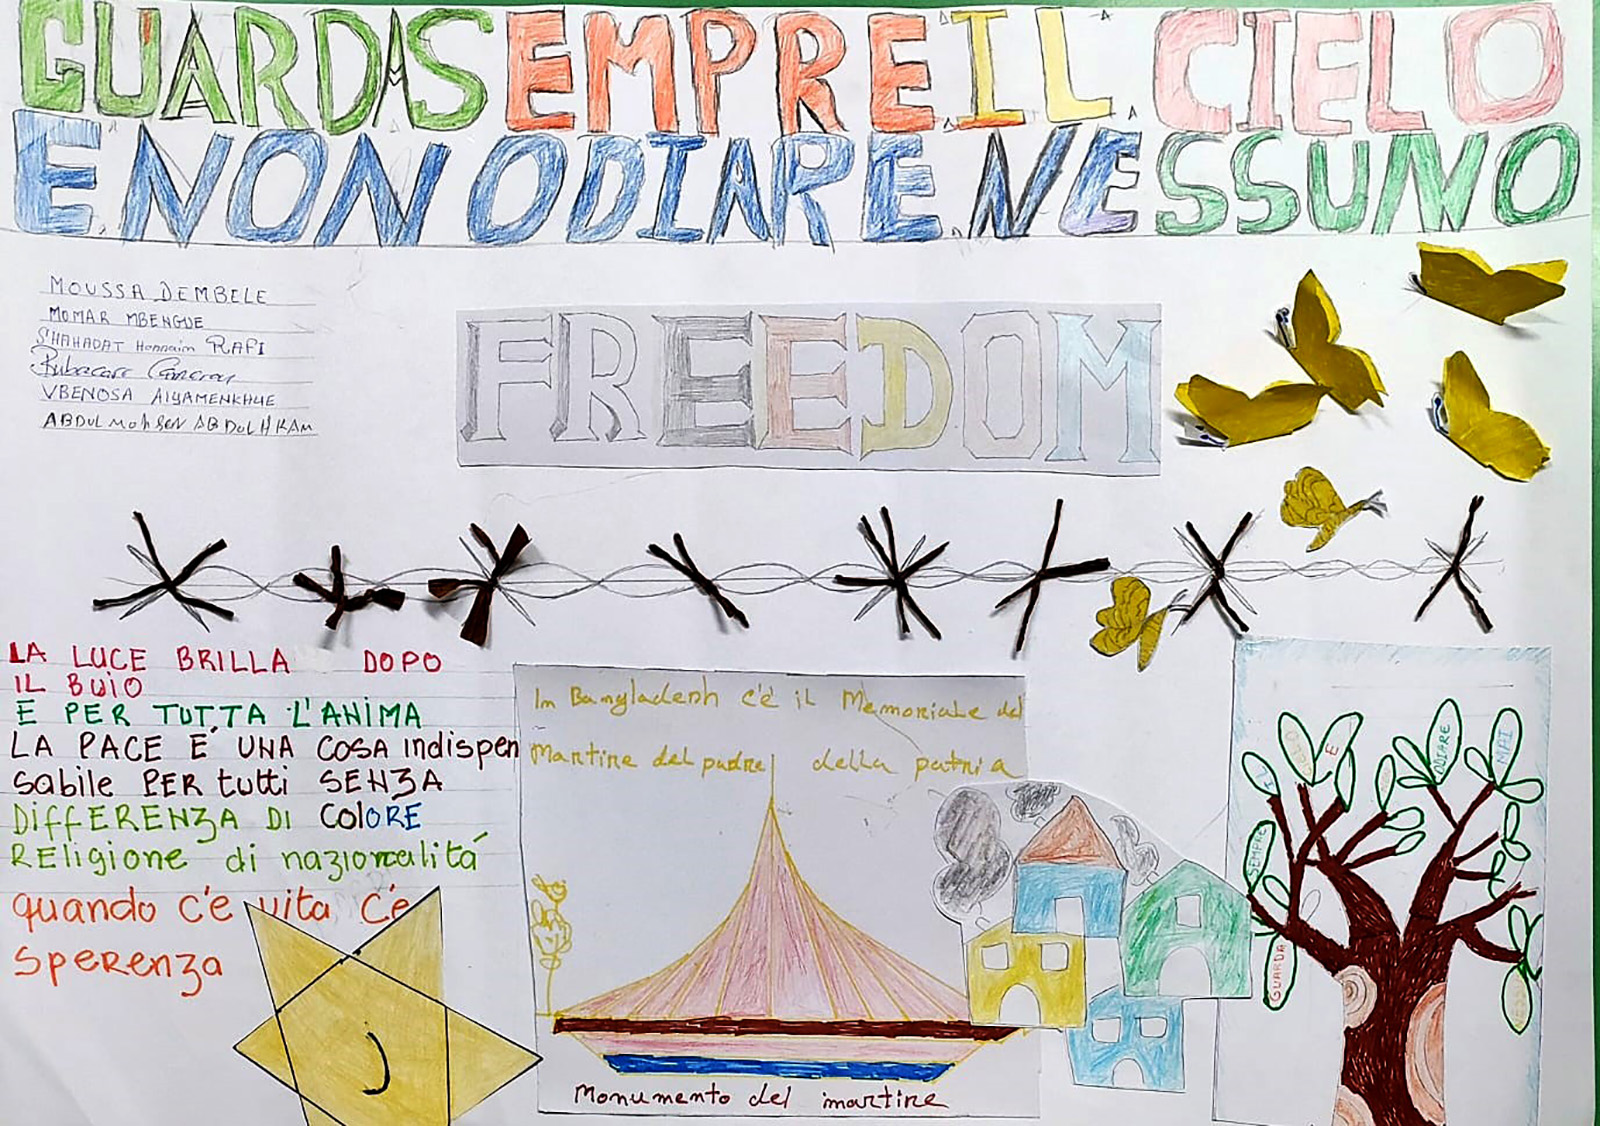 GUARDA SEMPRE IL CIELO
E NON ODIARE NESSUNO
MOUSSA DEMBELE
MOMAR MBENGUE
SHAHADAT Honnain RAFI
VBENOSA AIYAMENKHUE
ABDUL MOHSEN ABDULHKAM
FREEDOM
LA LUCE BRILLA DOPO
IL BUIO
E PER TUTTA L'ANIMA
LA PACE E' UNA COSA indispen
sabile PER tutti SENZA
DiffERENZA DI COLORE
REligione di nazionalitá
quando c'è vita c'è
SpERENZA
In Bangladesh c'è il Memoriale del
Martire del padre della patria
Monumento del martire
IL
CIELO
E
ODIARE
MAI
SEMPRE
GUARDA